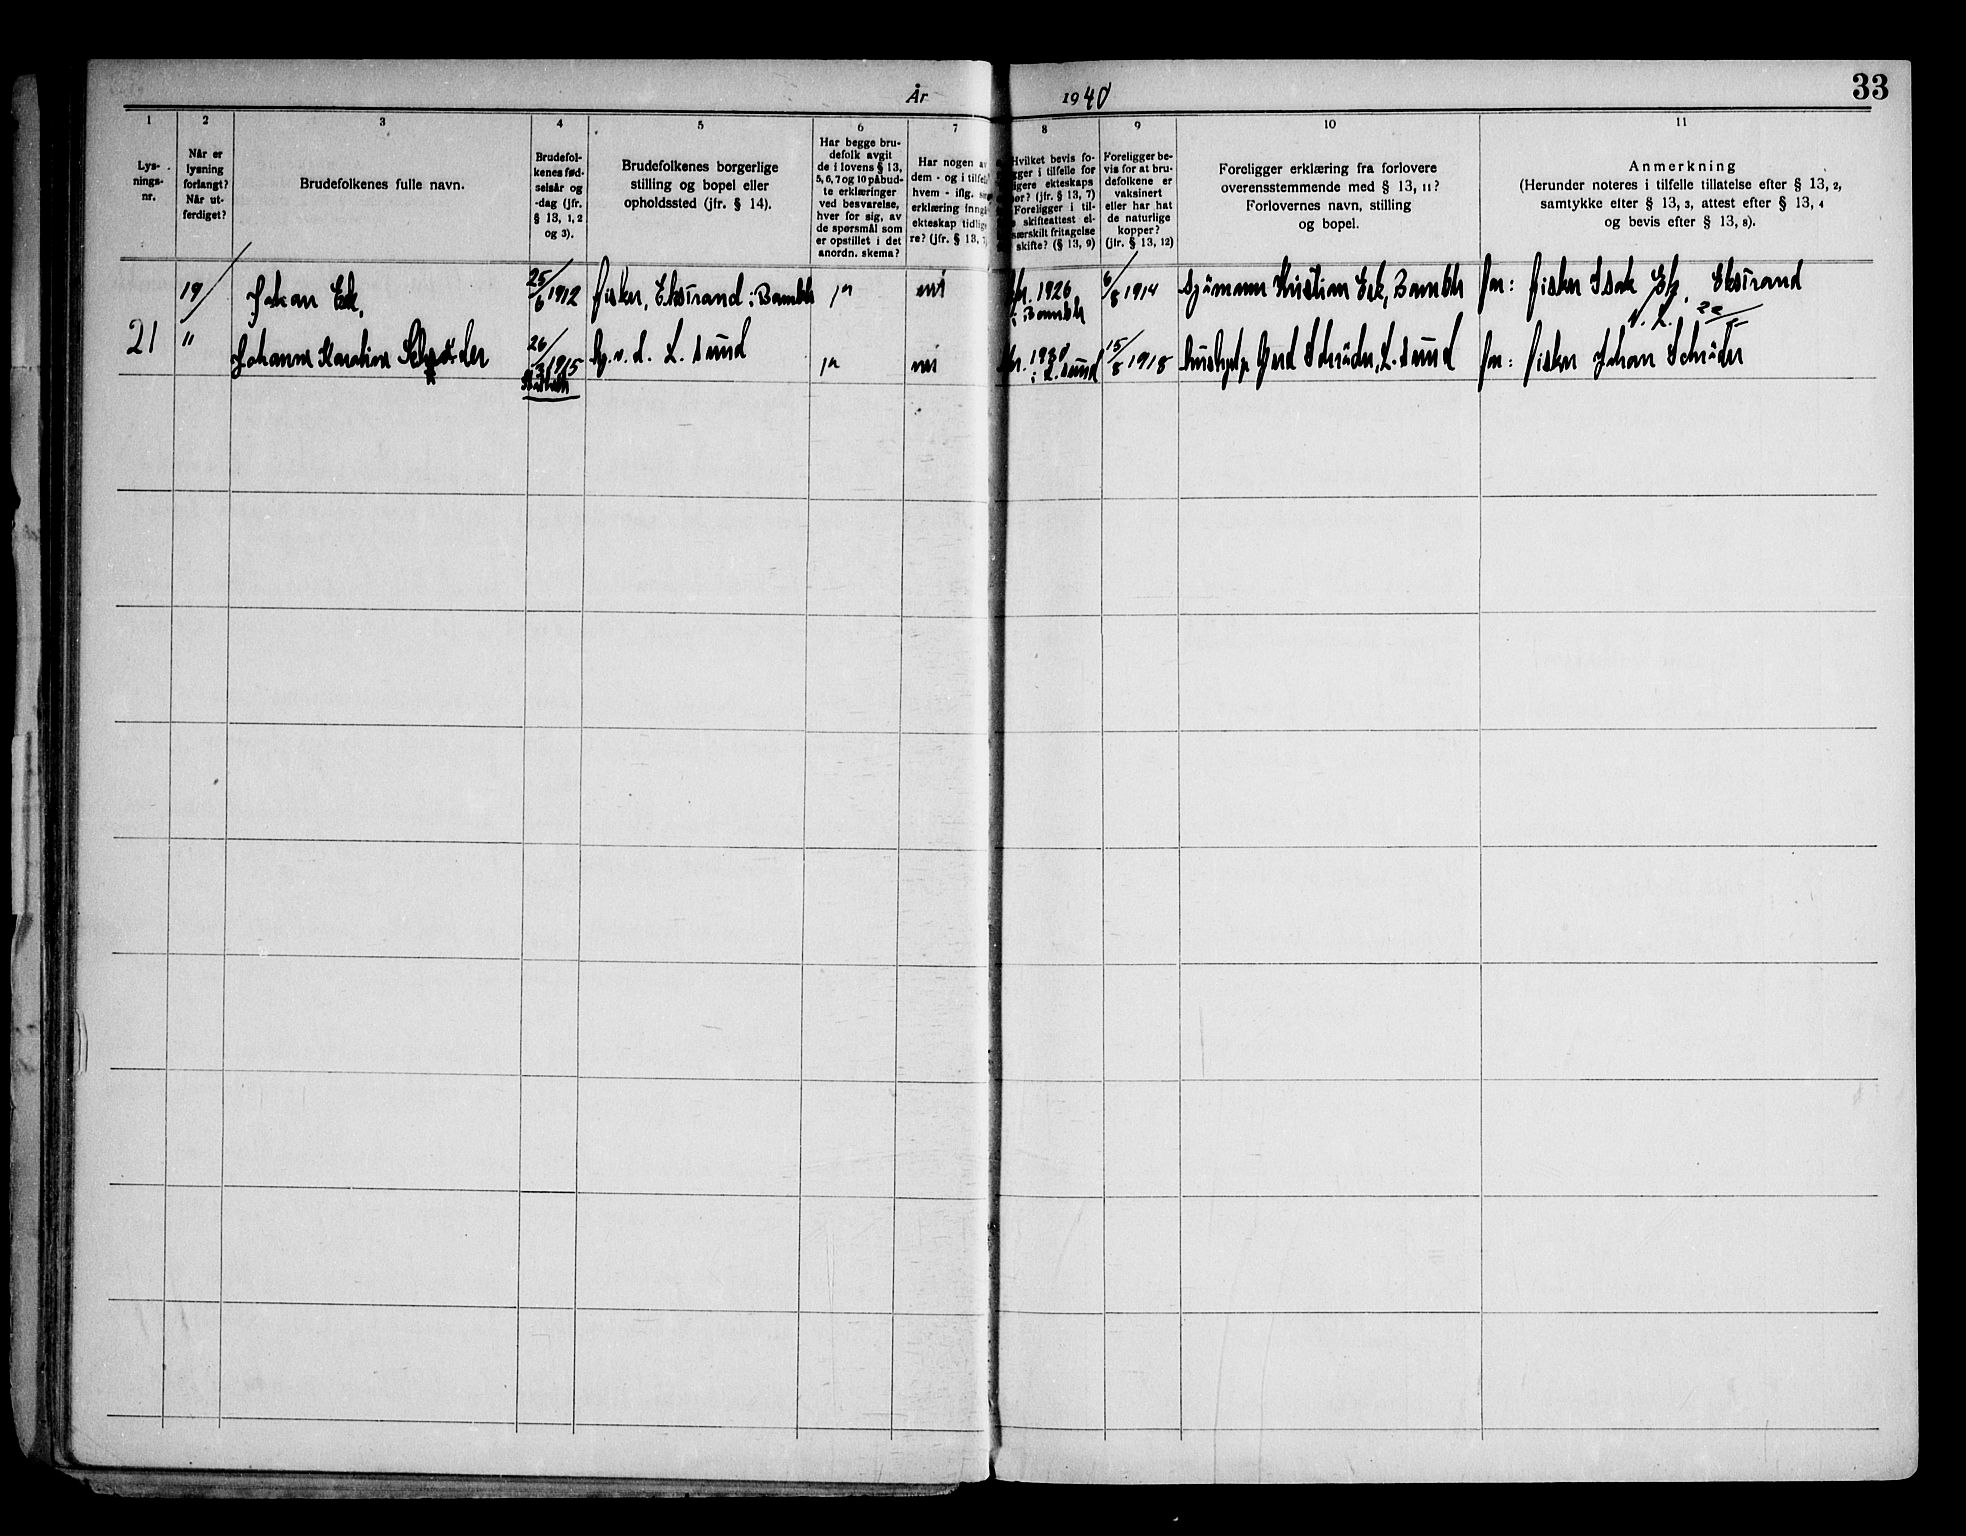 År 1940
33
1
2
3
4
5
6
7
8
9
10
11
Lys-
nings-
nr.
Når er
lysning
forlangt?
Når ut-
ferdiget?
Brudefolkenes fulle navn.
Brudefol-
kenes fød-
selsår og
-dag (jfr.
§ 13, 1, 2
og 3).
Brudefolkenes borgerlige
stilling og bopel eller
opholdssted (jfr. § 14).
Har begge bru-
defolk avgit
de i lovens § 13,
5, 6, 7 og 10 påbud-
te erklæringer
ved besvarelse,
hver for sig, av
de spørsmål som
er opstillet i det
anordn. skema?
Har nogen av
dem - og i tilfel
hvem - iflg.
erklæring inng
ekteskap tidlig
re? (jfr. § 13,
Hvilket bevis fo-
gger i tilfelle for
ligere ekteskaps
hør? (jfr. § 13, 7)
Foreligger i til-
skifteattest el-
særskilt fritagelse
skifte? (§ 13, 9)
Foreligger be-
vis for at bru-
defolkene er
vaksinert
eller har hat
de naturlige
kopper?
(jfr. § 13, 12)
Foreligger erklæring fra forlovere
overensstemmende med § 13, 11?
Forlovernes navn, stilling
og bopel.
Anmerkning
(Herunder noteres i tilfelle tillatelse efter § 13, 2,
samtykke efter § 13, 3, attest efter § 13, 4
og bevis efter § 13, 8).
21
19/
Johan Eek,
25/6 1912
fisker, Ekstrand i Bamble
ja
nei
1926
i Bamble
6/8 1914
Sjømann Kristian Eek, Bamble
far: fisker Isak Ek, Ekstrand
"
Johanne Karoline Schrøder
26/3 1915
L. sund
ja
nei
1930
i L. sund
15/8 1918
hushjelp Gerd Schrøder, L. sund
far: fisker Johan Schrøder